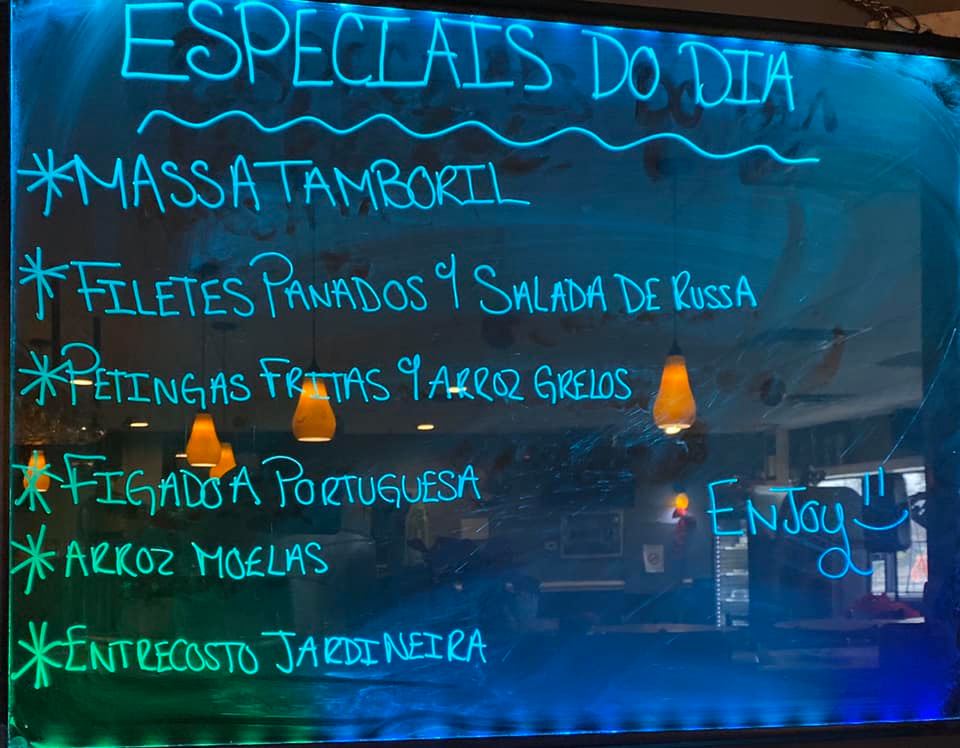 ESPECIAIS DO DIA
*MASSA TAMBORIL
*FILETES PANADOS Y SALADA DE RUSSA
*PETINGAS FRITAS Y ARROZ GRELOS
*FIGADO A PORTUGUESA
*ARROZ MOELAS
*ENTRECOSTO JARDINEIRA
ENJOY